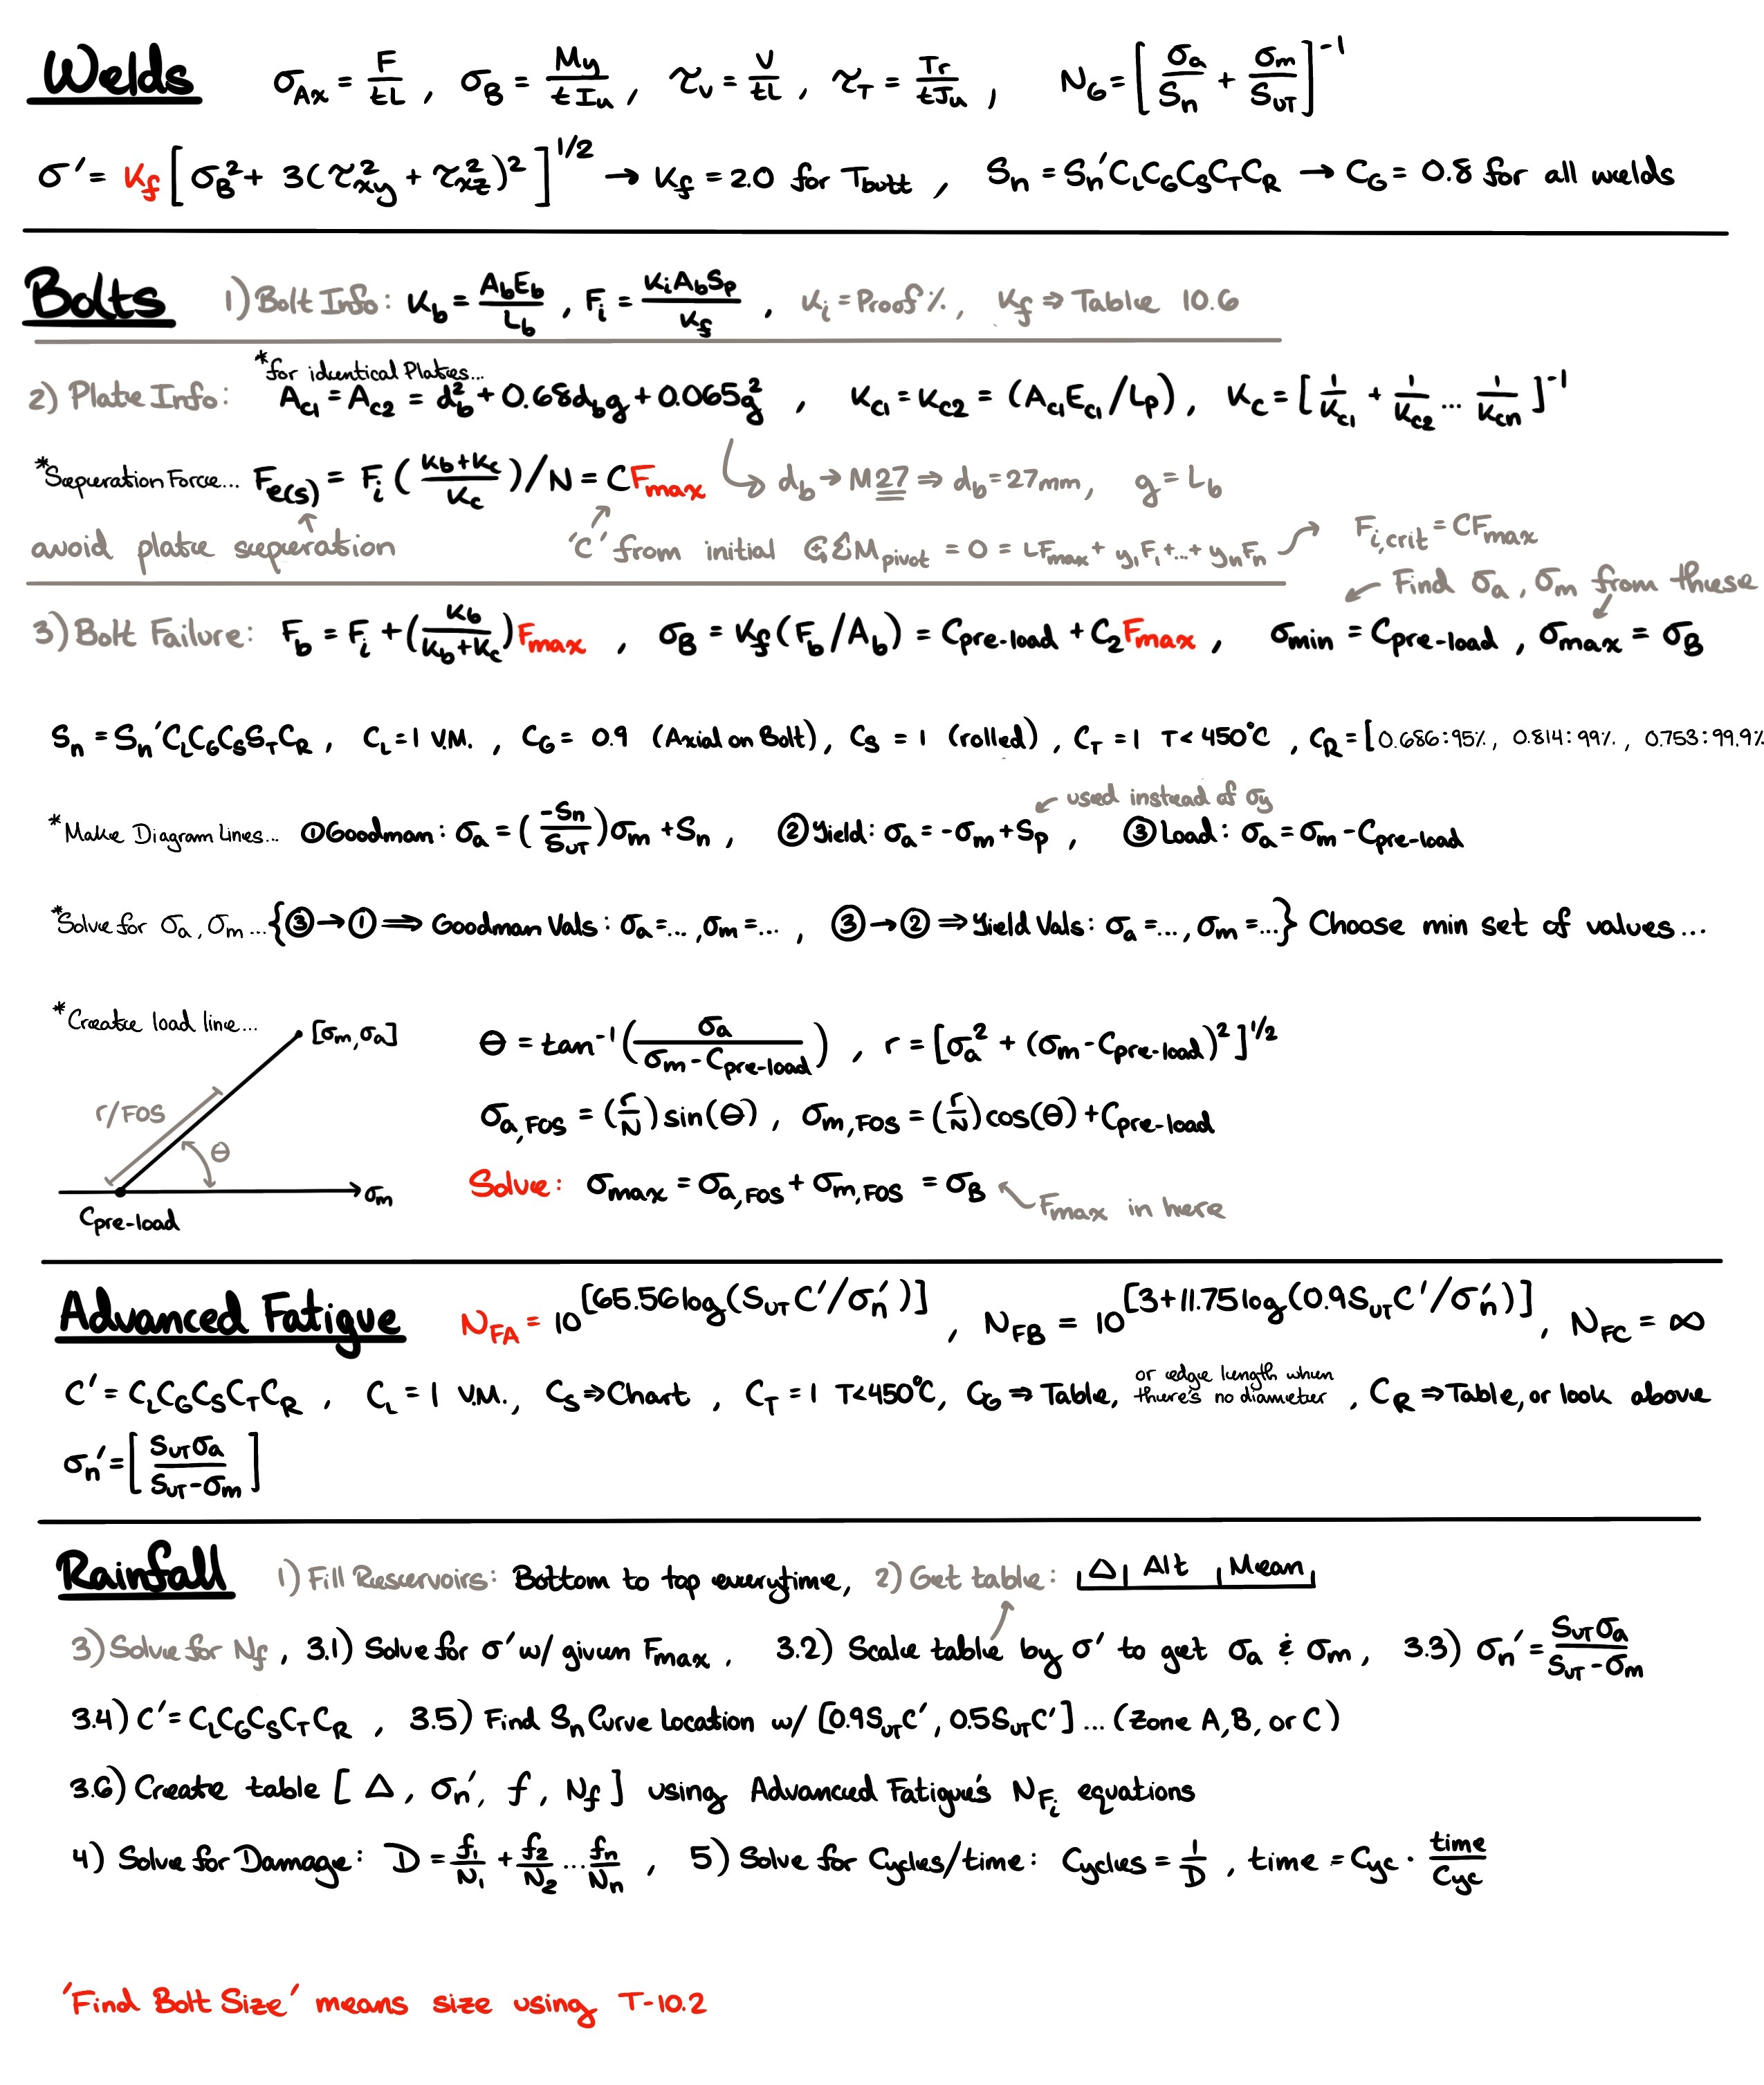 Welds σ_Ax = F/(tL) , σ_B = My/(t I_u) , τ_V = V/(tL) , τ_T = Tr/(tJ_u) , N_G = [σ_a/S_n + σ_m/S_UT]^-1
σ' = K_f [σ_B^2 + 3(τ_xy^2 + τ_xz^2)^2]^1/2 → K_f = 2.0 for T_butt , S_n = S_n' C_L C_G C_S C_T C_R → C_G = 0.8 for all welds
Bolts 1) Bolt Info: K_b = A_b E_b/L_b , F_i = K_i A_b S_p/K_f , K_i = Proof % , K_f ⇒ Table 10.6
*for identical Plates...
2) Plate Info: A_c1 = A_c2 = d_b^2 + 0.68 d_b g + 0.065 g^2 , K_c1 = K_c2 = (A_c1 E_c1 / L_p) , K_c = [1/K_c1 + 1/K_c2 ... 1/K_cn]^-1
*Seperation Force... F_e(s) = F_i ((K_b + K_c)/K_c)/N = C F_max ↳ d_b → M27 ⇒ d_b = 27mm, g = L_b
avoid plate seperation 'C' from initial ↻ΣM_pivot = 0 = LF_max + y_1F_1 +...+ y_nF_n → F_i,crit = CF_max
← Find σ_a , σ_m from these
3) Bolt Failure: F_b = F_i + (K_b/(K_b + K_c)) F_max , σ_B = K_f (F_b/A_b) = C_pre-load + C_2 F_max , σ_min = C_pre-load , σ_max = σ_B
S_n = S_n' C_L C_G C_S S_T C_R , C_L = 1 V.M. , C_G = 0.9 (Axial on Bolt) , C_S = 1 (rolled) , C_T = 1 T < 450°C , C_R = [0.686:95% , 0.814:99% , 0.753:99.9%
← used instead of σ_y
*Make Diagram Lines... ① Goodman: σ_a = (-S_n/S_UT) σ_m + S_n , ② Yield: σ_a = -σ_m + S_p , ③ Load: σ_a = σ_m - C_pre-load
*Solve for σ_a, σ_m ... {③ → ① ⟹ Goodman Vals: σ_a = ... , σ_m = ... , ③ → ② ⟹ Yield Vals: σ_a = ... , σ_m = ...} Choose min set of values...
*Create load line... [σ_m, σ_a]
θ = tan^-1 (σ_a/(σ_m - C_pre-load)) , r = [σ_a^2 + (σ_m - C_pre-load)^2]^1/2
r/FOS
σ_a,FOS = (r/N) sin(θ) , σ_m,FOS = (r/N) cos(θ) + C_pre-load
θ
Solve: σ_max = σ_a,FOS + σ_m,FOS = σ_B ← F_max in here
σ_m
C_pre-load
Advanced Fatigue N_FA = 10^[65.56 log(S_UT C'/σ_n')] , N_FB = 10^[3 + 11.75 log(0.9 S_UT C'/σ_n')] , N_FC = ∞
C' = C_L C_G C_S C_T C_R , C_L = 1 V.M. , C_S ⇒ Chart , C_T = 1 T < 450°C, C_G ⇒ Table, or edge length when there's no diameter , C_R ⇒ Table, or look above
σ_n' = [S_UT σ_a/(S_UT - σ_m)]
Rainfall 1) Fill Reservoirs: Bottom to top everytime, 2) Get table: | Δ | Alt | Mean |
3) Solve for N_f , 3.1) Solve for σ' w/ given F_max , 3.2) Scale table by σ' to get σ_a & σ_m , 3.3) σ_n' = S_UT σ_a/(S_UT - σ_m)
3.4) C' = C_L C_G C_S C_T C_R , 3.5) Find S_n Curve Location w/ [0.9 S_UT C' , 0.5 S_UT C'] ... (Zone A, B, or C)
3.6) Create table [Δ, σ_n', f, N_f] using Advanced Fatigue's N_Fi equations
4) Solve for Damage: D = f_1/N_1 + f_2/N_2 ... f_n/N_n , 5) Solve for Cycles/time: Cycles = 1/D , time = Cyc · time/Cyc
'Find Bolt Size' means size using T-10.2